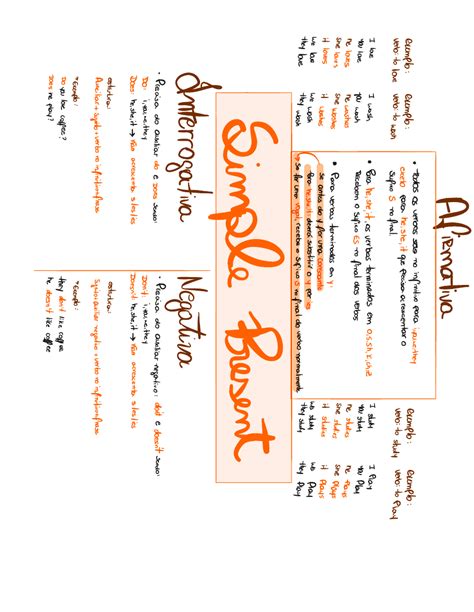 Afirmativa
Exemplo:
verbo: to love
I love
you love
he loves
she loves
it loves
we love
they love
Exemplo:
verbo: to wash
I wash
you wash
he washes
she washes
it washes
we wash
they wash
• todos os verbos são no infinitivo para i,you,we,they
exceto para he, she, it que precisa acrescentar o
Sufixo S no final.
• Para he, she, it, os verbos terminados em o,s,sh,x,ch,z
Recebem o sufixo ES no final dos verbos
• Para verbos terminados em y:
Se antes do y for uma consoante
Para he,she,it substituir o y por ies
Se for uma vogal, recebe o sufixo s no final do verbo normalmente
Exemplo:
verbo: to study
I study
you study
he studies
she studies
it studies
we study
they study
Exemplo:
verbo: to Play
I Play
you Play
he Plays
she Plays
it Plays
we Play
they Play
Simple Present
Interrogativa
• Precisa do auxiliar do e does sendo:
Do: i,you,we,they
Does: he,she,it → não acrescenta s/es/ies
estrutura:
Auxiliar + sujeito + verbo no infinitivo + frase
*Exemplo:
Do you like coffee?
Does he play?
Negativa
• Precisa do auxiliar negativo: don't e doesn't sendo:
Don't: i,you,we,they
Doesn't: he,she,it → não acrescenta s/es/ies
estrutura:
Sujeito + auxiliar negativo + verbo no infinitivo + frase
*Exemplo:
they don't like coffee
he doesn't like coffee